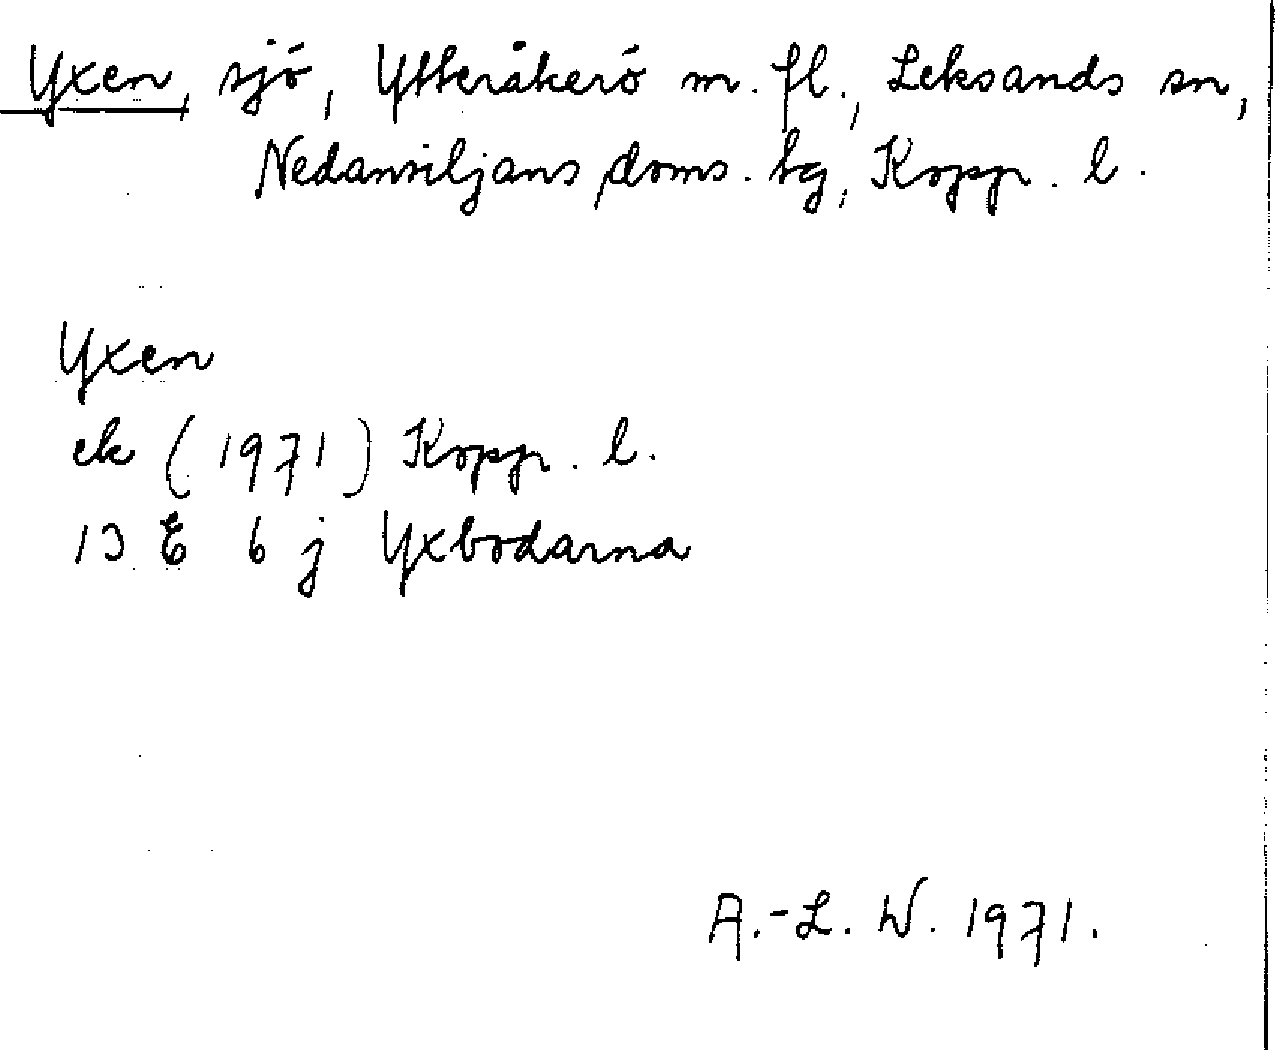 Yxen, sjö, Ytteråkerö m. fl., Leksands sn,
Nedansiljans doms. tg, Kopp. l.
Yxen
ek (1971) Kopp. l.
13 E 6 j Yxbodarna
A.-L. W. 1971.